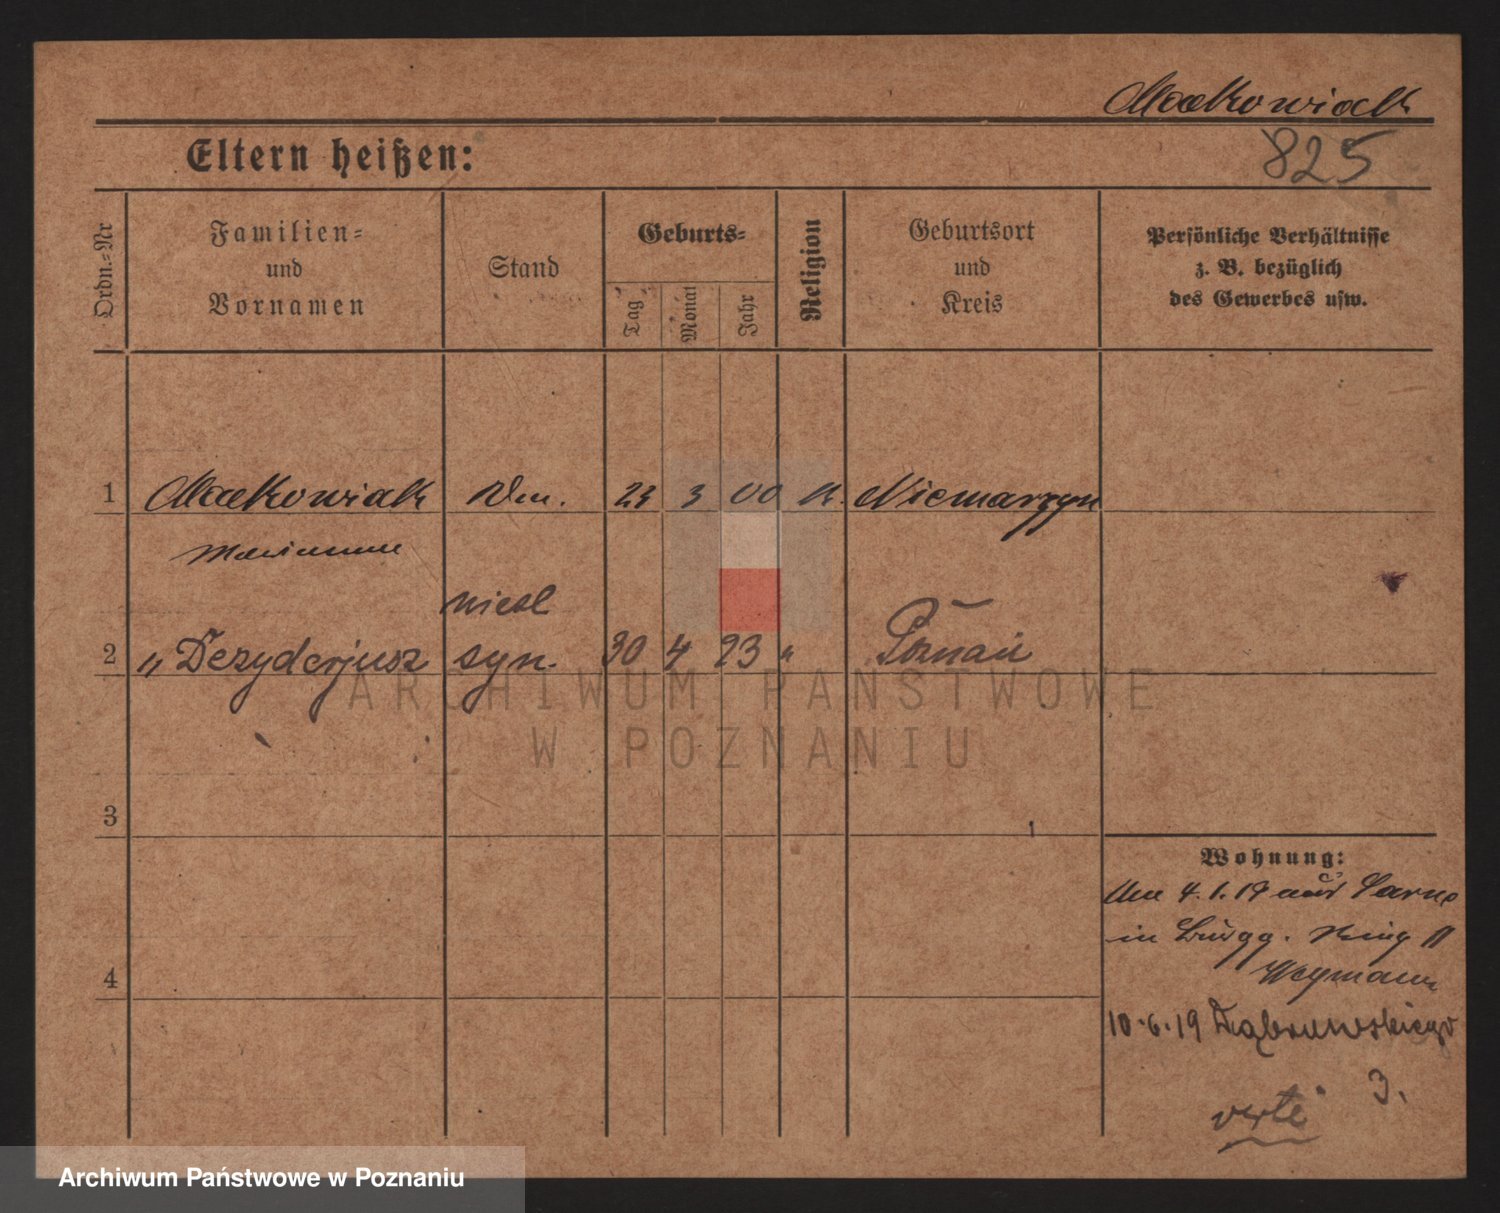 Makowiak
825
Eltern heißen:
Ordn.=Nr
Familien=
und
Vornamen
Stand
Geburts=
Tag
Monat
Jahr
Religion
Geburtsort
und
Kreis
Persönliche Verhältnisse
z. B. bezüglich
des Gewerbes usw.
1 Makowiak 23 3 00 K. Niemarzyn
Marianne
niesl
2 " Dezyderjusz syn. 30 4 23 " Poznań
ARCHIWUM PAŃSTWOWE
W POZNANIU
3
Wohnung:
4. 1. 19 aus Sarne
in Ring
4
Weymann
10.6.19 Dąbrowskiego
3.
verte
Archiwum Państwowe w Poznaniu